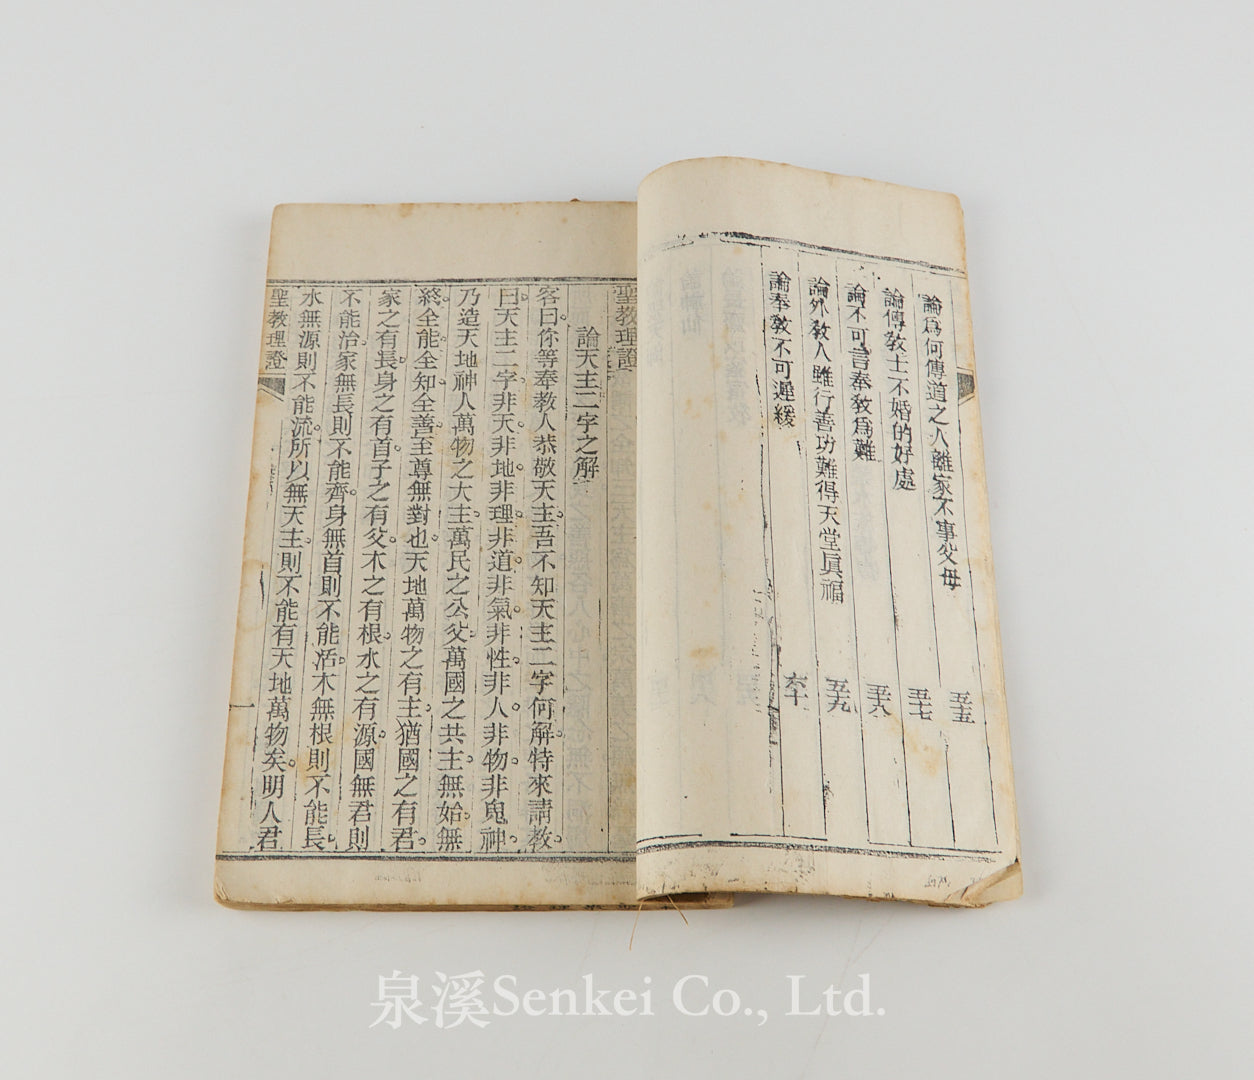 論為何傳道之人離家不事父母 五十五
論傳教士不婚的好處 五十七
論不可言奉教為難 五十八
論外教人雖行善功難得天堂眞福 五十九
論奉教不可遲緩 六十
聖教理證
論天主二字之解
客曰你等奉教人恭敬天主。吾不知天主二字何解。特來請教。
曰天主二字非天。非地。非理。非道。非氣。非性。非人。非物。非鬼神。
乃造天地神人萬物之大主。萬民之公父。萬國之共主。無始無
終。全能全知全善。至尊無對也。天地萬物之有主。猶國之有君。
家之有長。身之有首。子之有父。木之有根。水之有源。國無君則
不能治。家無長則不能齊。身無首則不能活。木無根則不能長。
水無源則不能流。所以無天主。則不能有天地萬物矣。明人君
聖教理證
一
泉溪Senkei Co., Ltd.